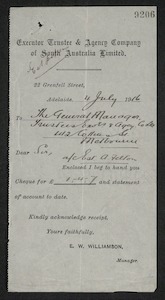 9206
Executor Trustee & Agency Company
of South Australia Limited.
22 Grenfell Street,
Adelaide, 4 July 1916
To
The General Manager
Trustees Exors & Agcy Co Ltd
412 Collins St
Melbourne
Dear Sir,
Enclosed I beg to hand you
Cheque for £ and statement
of account to date.
Kindly acknowledge receipt.
Yours faithfully,
E. W. WILLIAMSON,
Manager